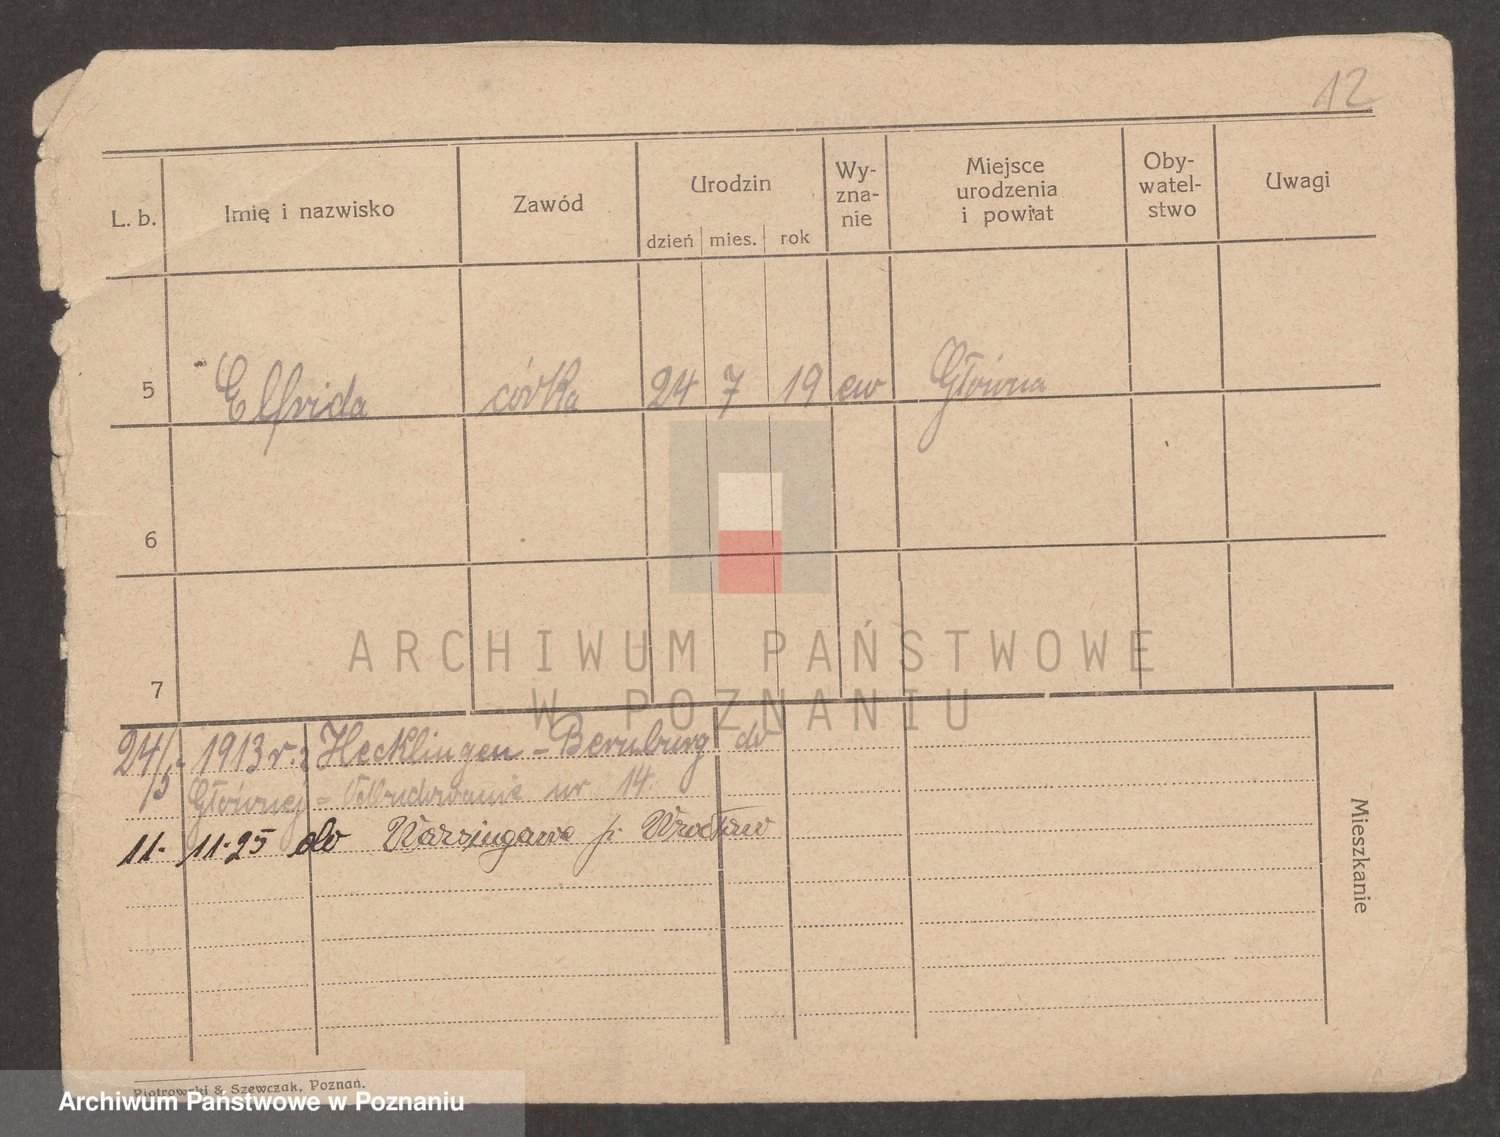 12
L. b. Imię i nazwisko Zawód Urodzin dzień mies. rok Wy-zna-nie Miejsce urodzenia i powiat Oby-watel-stwo Uwagi
5 Elfrida córka 24 7 19 ew Główna
6
7
ARCHIWUM PAŃSTWOWE
W POZNANIU
24/5 1913 r.: Hecklingen - Bernburg do
Głównej = nr 14.
11. 11. 25 do p. Wrocław
Mieszkanie
Piotrowski & Szewczak, Poznań.
Archiwum Państwowe w Poznaniu